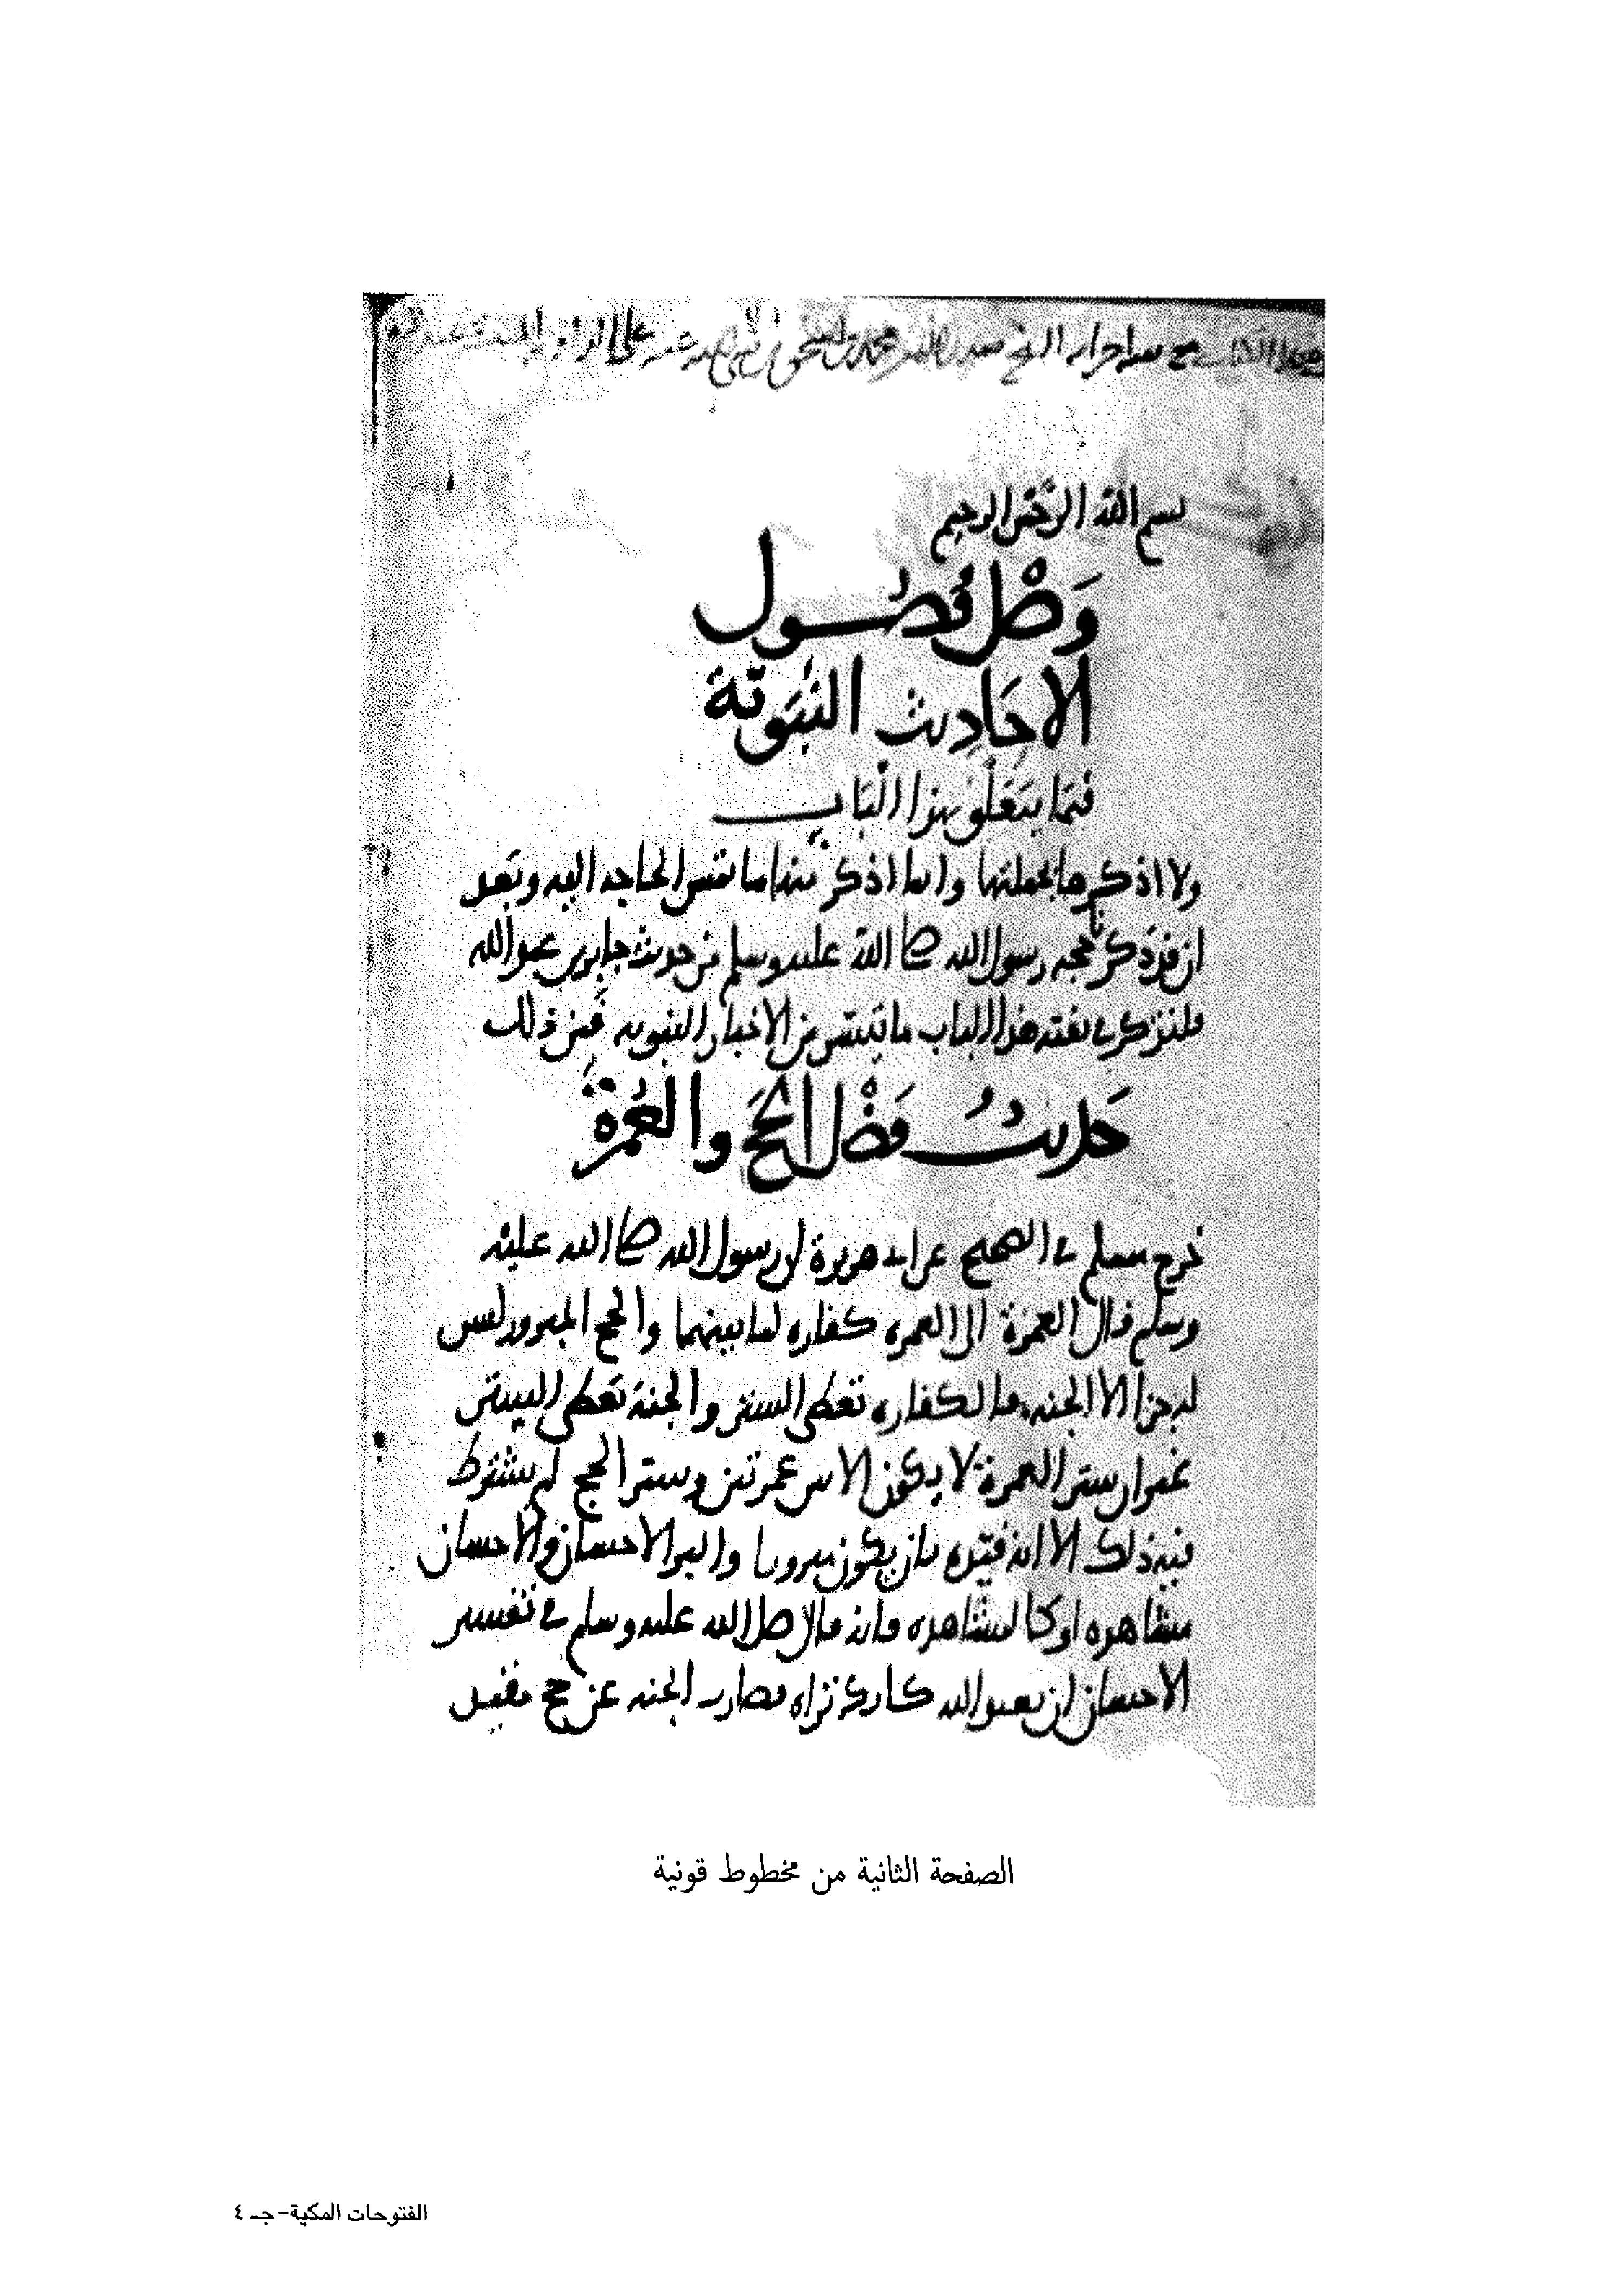 بسم الله الرحمن الرحيم
وَصْل فُصُول
الاحَادِيث النَبَويّة
فيمَا يتَعَلّق بهذا البَاب
ولا اذكرها بجملتها وانما اذكر منها ما تمس الحاجه اليه وبَعد
ان قد ذكرنا حجه رسول الله صلى الله عليه وسلم من حديث جابر بن عبد الله
فلنذكر في هذا الباب ما تيسّر من الاخبار النبويه فَمن ذلك
حَدِيثُ فَضْل الحَج والعُمْرَة
خرج مسلم في الصحيح عن ابي هريرة ان رسول الله صلى الله عليه
وسلم قال العمرة الى العمره كفاره لما بينهما والحج المبرور ليس
له جزا الا الجنه فالكفاره تعطى الستر والجنة تعطى الستر
غير ان ستر العمرة لا يكون الا بين عمرتين وستر الحج لم يشترط
فيه ذلك الا انه قيّده بان يكون مبرورا والبر الاحسان والاحسان
مشاهده او كالمشاهده فانه قال صلى الله عليه وسلم في تفسير
الاحسان ان تعبد الله كانك تراه فصارت الجنه عن حج مقيد
الصفحة الثانية من مخطوط قونية
الفتوحات المكية- جـ ٤